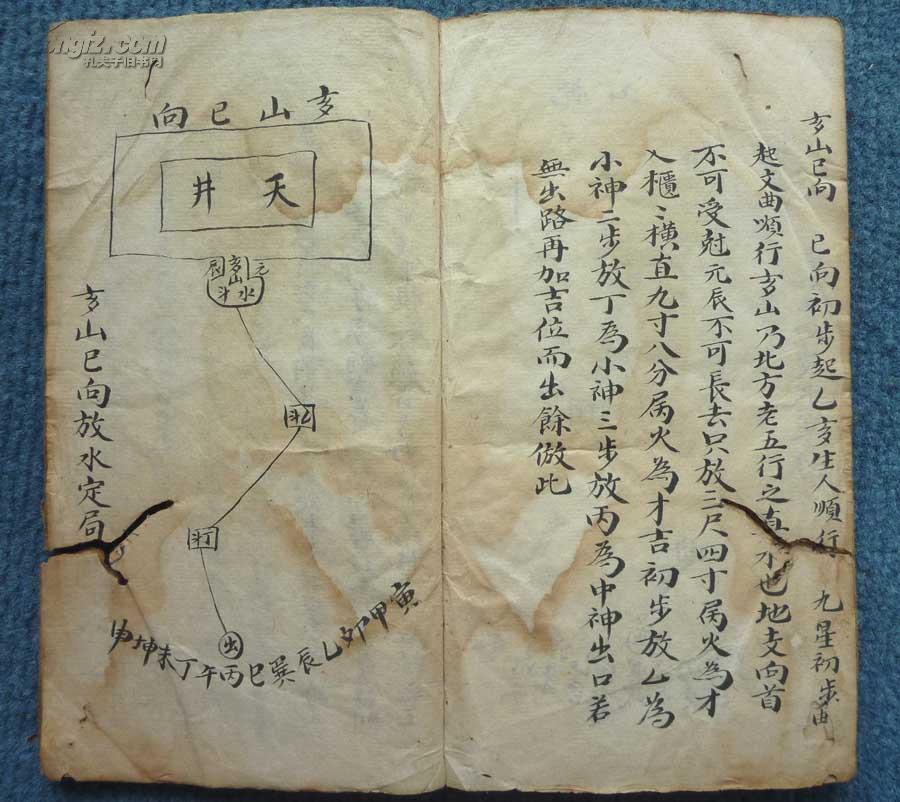 亥山巳向　巳向初步起乙亥生人順行　九星初步由
起文曲順行亥山乃北方老五行之真水也地支向首
不可受尅元辰不可長去只放三尺四寸属火為才
入櫃〻橫直九寸八分属火為才吉初步放乙為
小神二步放丁為小神三步放丙為中神出口若
無出路再加吉位而出餘倣此
亥山巳向
天井
元辰
亥山
水斗
乙斗
丁斗
出
寅甲卯乙辰巽巳丙午丁未坤申
亥山巳向放水定局
孔夫子旧书网